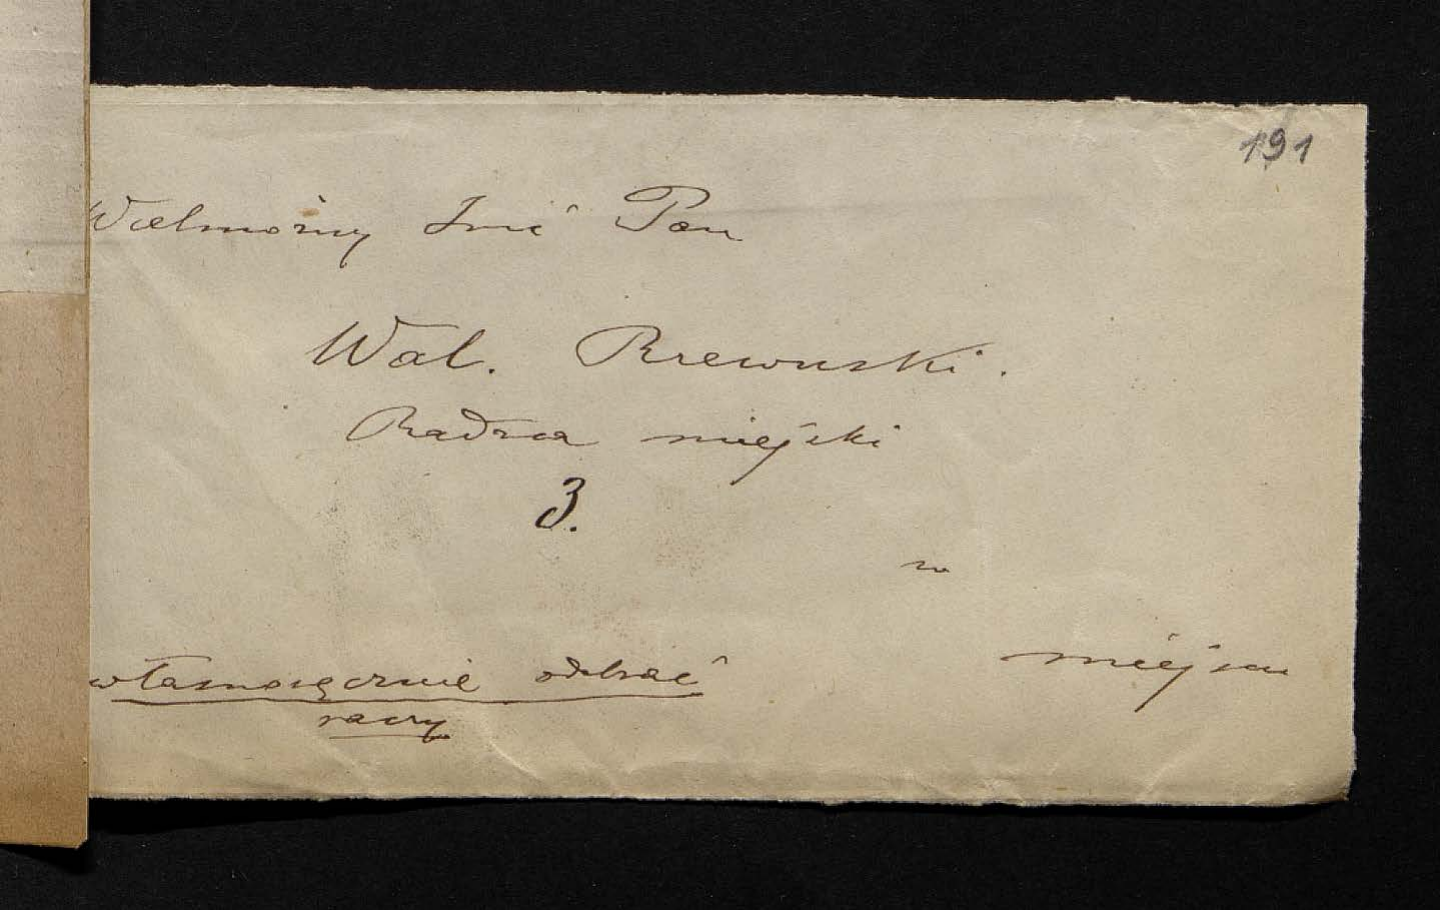 191
Wielmożny Imć Pan
Wal. Rzewuski.
Radzca miejski
3.
w
miejscu
własnoręcznie odebrać
raczy